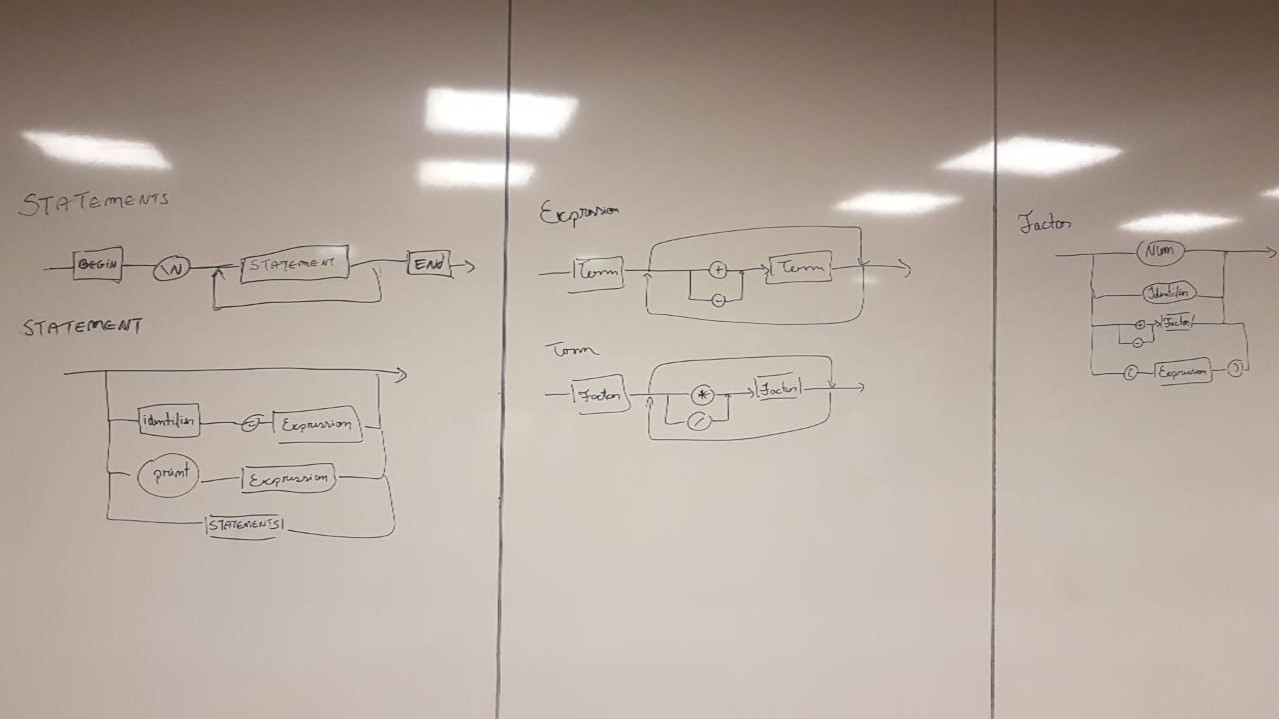 STATEMENTS
BEGIN \N STATEMENT END
STATEMENT
identifier = Expression
print Expression
STATEMENTS
Expression
Term + Term
-
Term
Factor * Factor
/
Factor
Num
Identifier
+ Factor
-
( Expression )